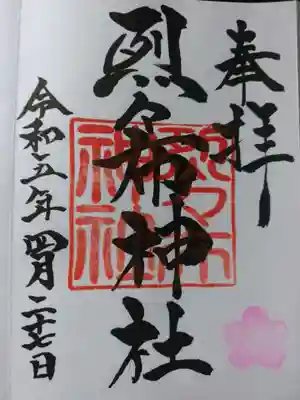 奉拝
烈々布神社
烈々布
神社
令和五年四月二十七日